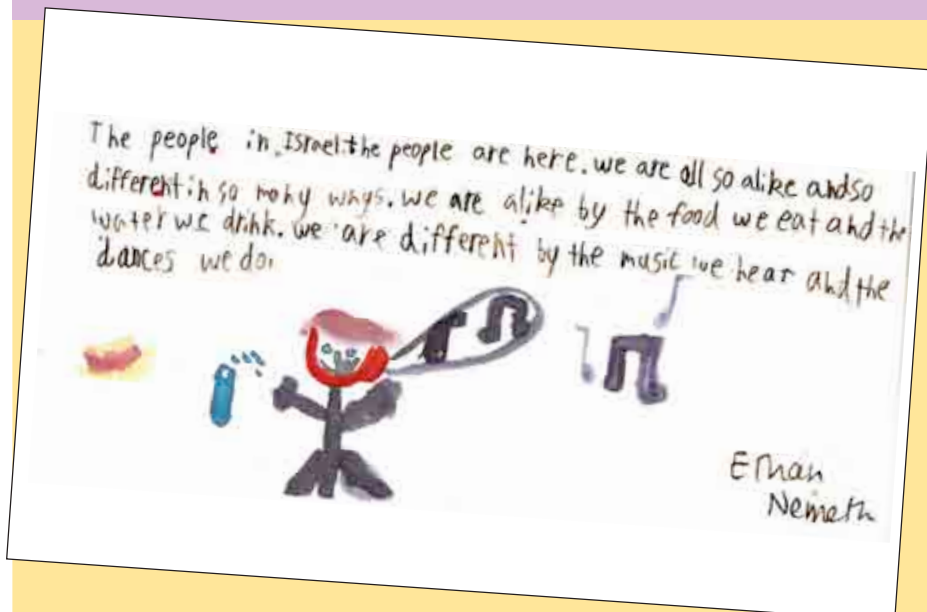 The people in Israel. the people are here. we are all so alike and so
different in so many ways. we are alike by the food we eat and the
water we drink. we are different by the music we hear and the
dances we do.
Ethan
Nemeth